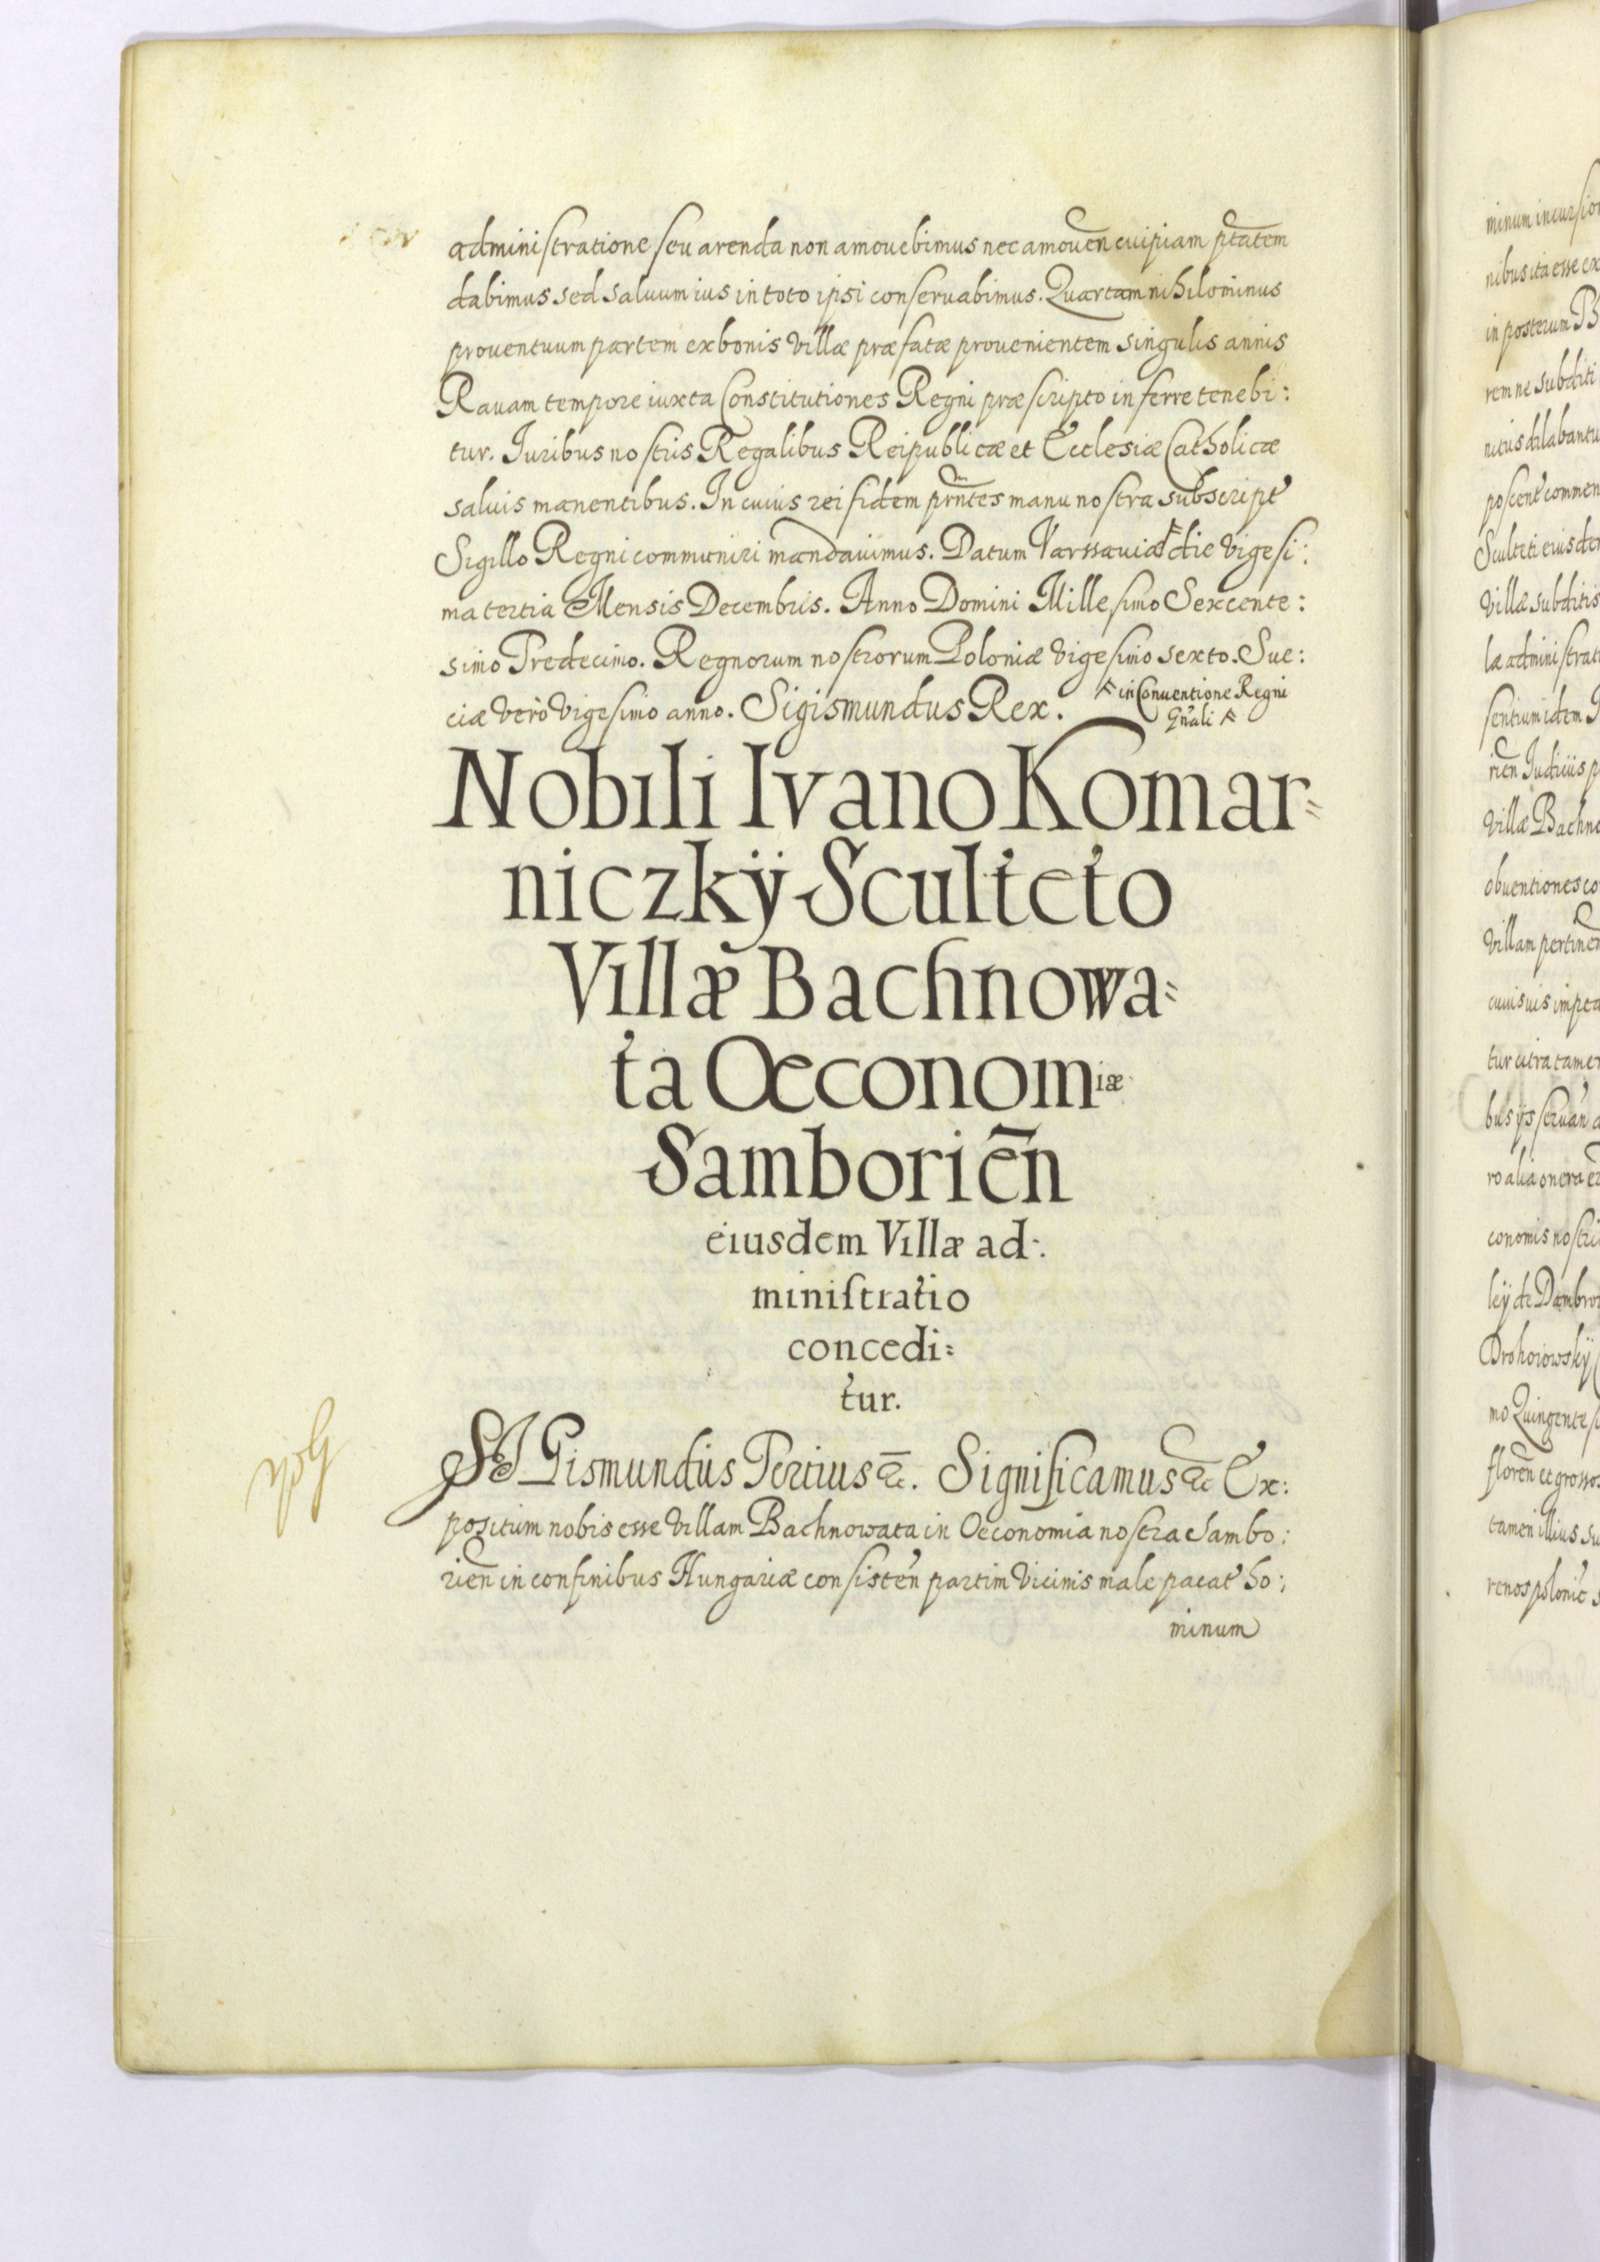 administratione seu arenda non amovebimus nec amoven̄ cuipiam ptatem
dabimus sed salvum ius in toto ipsi conservabimus. Quartam nihilominus
proventuum partem ex bonis villæ præfatæ provenientem singulis annis
Ravam tempore iuxta Constitutiones Regni præscripto inferre tenebi:
tur. Iuribus nostris Regalibus Reipublicæ et Ecclesiæ Catholicæ
salvis manentibus. In cuius rei fidem prn̄tes manu nostra subscript
Sigillo Regni communiri mandavimus. Datum Varssaviæ die vigesi:
ma tertia Mensis Decembris. Anno Domini Millesimo Sexcente:
simo Tredecimo. Regnorum nostrorum Poloniæ vigesimo sexto. Sue:
ciæ verò vigesimo anno. Sigismundus Rex.
in Conventione Regni
Gn̄ali
Nobili Ivano Komar=
niczkÿ Sculteto
Villæ Bachnowa=
ta Œconomiæ
Samborien̄
eiusdem Villæ ad:
ministratio
concedi=
tur.
SIGismundus Tertius &c. Significamus &c Ex:
positum nobis esse villam Bachnowata in Oeconomia nostra Sambo:
rien̄ in confinibus Hungariæ consisten̄ partim vicinis male pacat ho:
minum
minum incursio
nibus ita esse ex
in posterum B
rem ne subditi
nitus dilabantu
poscent commen
Sculteti eiusdem
villæ subditis
la administrati
sentium idem
rien̄ Judiciis p
villæ Bachno
obventiones co
villam pertinen̄
cuiusvis impe
tur citra tamen
bus ijs servan̄ a
ro alia onera e
conomis nostri
leÿ de Dambro
Drohoiowskÿ
mo Quingentes
floren̄ et grosso
tamen illius su
renos polonic s